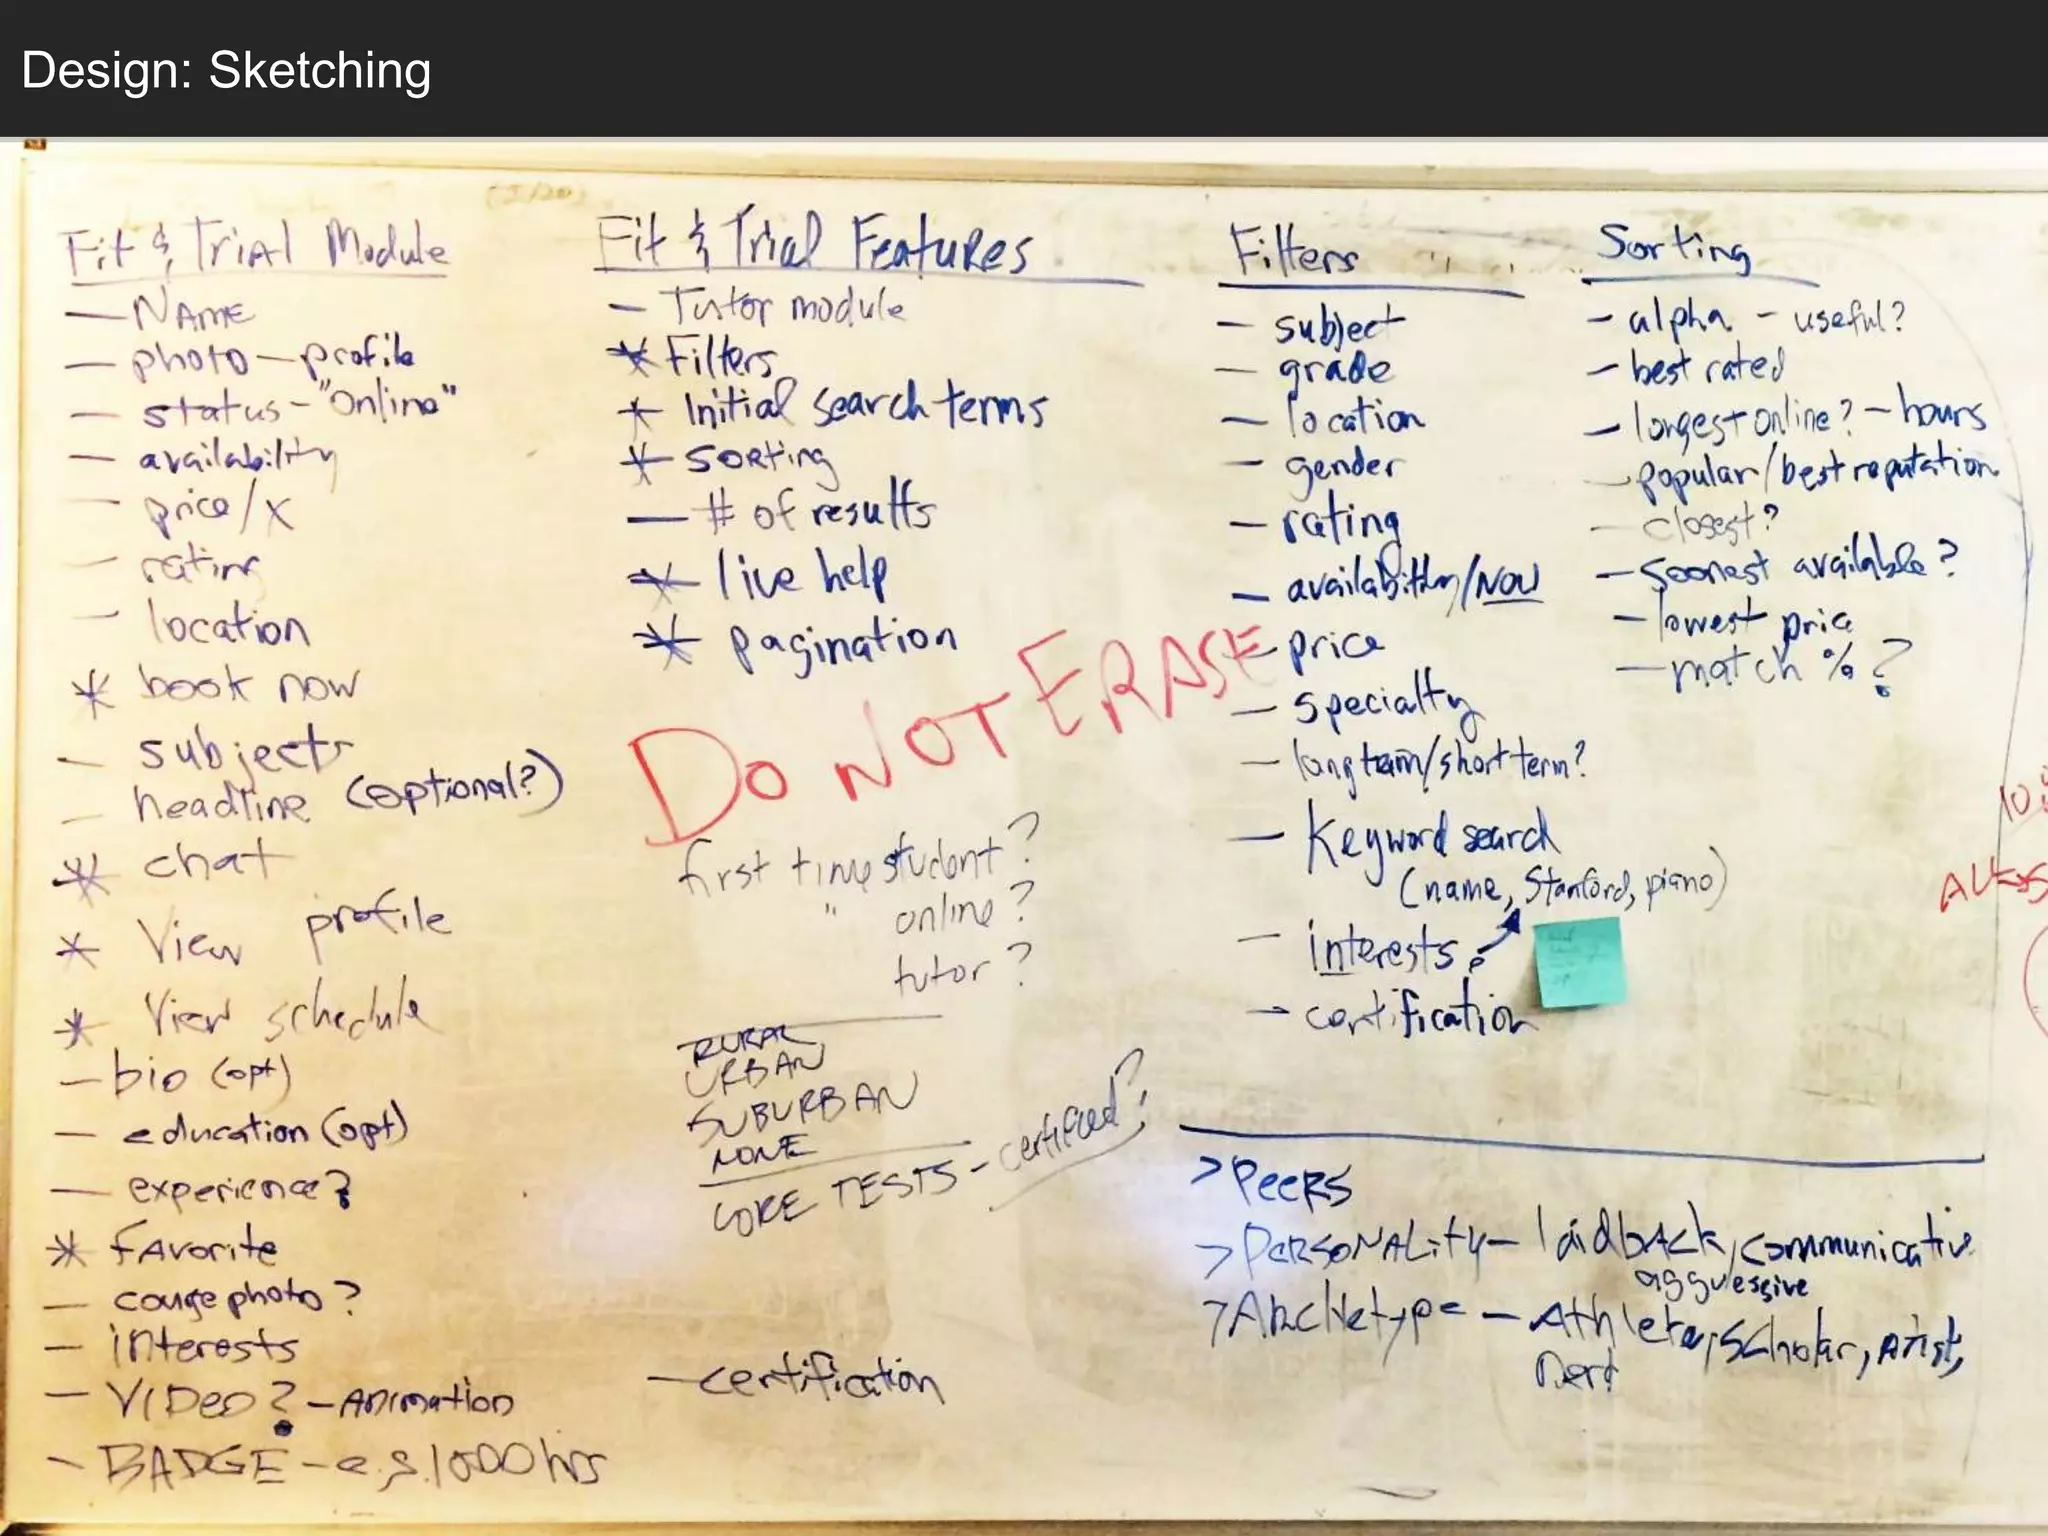 Design: Sketching
Fit & Trial Module
— NAME
— photo — profile
— status - "Online"
— availability
— price/x
— rating
— location
* book now
— subjects
— headline (optional?)
* chat
* View profile
* View schedule
— bio (opt)
— education (opt)
— experience?
* FAvorite
— photo?
— interests
— VIDeo? - Animation
- BADGE - e.g. 1000 hrs
Fit & Trial Features
— Tutor module
* Filters
* Initial search terms
* Sorting
— # of results
* live help
* pagination
DO NOT ERASE
first time student?
" online?
tutor?
RURAL
URBAN
SUBURBAN
NONE
CORE TESTS - certified?
— certification
Filters
— subject
— grade
— location
— gender
— rating
— availability/NOW
— price
— specialty
— longterm/short term?
— Keyword search
(name, Stanford, piano)
— interests
— certification
Sorting
— alpha - useful?
— best rated
— longest online? - hours
— popular/best reputation
— closest?
— soonest available?
— lowest price
— match %?
> Peers
> PERSONALity - laidback, communicative
aggressive
> Archetype - Athlete, Scholar, Artist,
Nerd